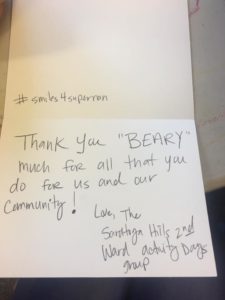 #smiles4superron
Thank you "BEARY"
much for all that you
do for us and our
community!
Love, The
Saratoga Hills 2nd
Ward activity Days
group